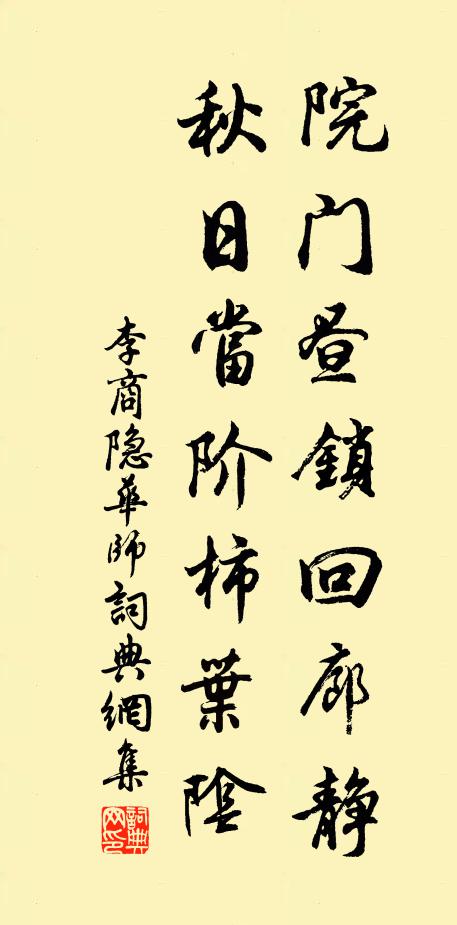 院门昼鎖回廊静
秋日當阶柿葉陰
李商隐華師詞典網集
詞典网印